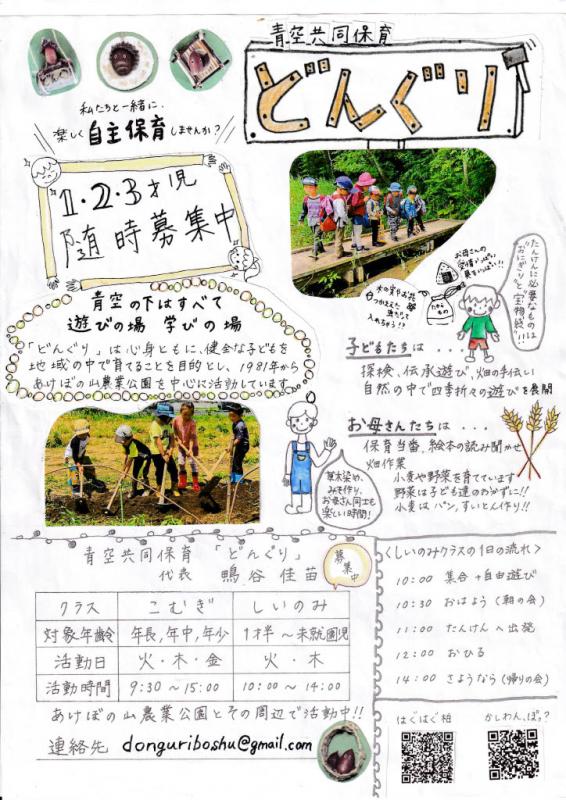 青空共同保育
どんぐり
どんぐり
私たちと一緒に、
楽しく自主保育しませんか?
1・2・3才児
随時募集中
青空の下はすべて
遊びの場 学びの場
「どんぐり」は心身ともに、健全な子どもを
地域の中で育てることを目的とし、1981年から
あけぼの山農業公園を中心に活動しています
たんけんに必要なものは
"おにぎり"と"宝物袋"!!!
お母さんの
愛情いっぱい
具もいっぱい!!
木の実やお花
つかまえた虫だって
入れちゃう!?
子どもたちは・・・
探検、伝承遊び、畑の手伝い
自然の中で四季折々の遊びを展開
お母さんたちは・・・
保育当番、絵本の読み聞かせ
畑作業
小麦や野菜を育てています
野菜は子ども達のおかずに!!
小麦はパン、すいとん作り!!
草木染や、
みそ作り、
お母さん同士も
楽しい時間!
青空共同保育 「どんぐり」
代表 鴨谷佳苗
募集中
クラス こむぎ しいのみ
対象年齢 年長、年中、年少 1才半~未就園児
活動日 火・木・金 火・木
活動時間 9:30~15:00 10:00~14:00
あけぼの山農業公園とその周辺で活動中!!
連絡先 donguriboshu@gmail.com
<しいのみクラスの1日の流れ>
10:00 集合+自由遊び
10:30 おはよう(朝の会)
11:00 たんけんへ出発
12:00 おひる
14:00 さようなら(帰りの会)
はぐはぐ柏
かしわん、ぽっ?